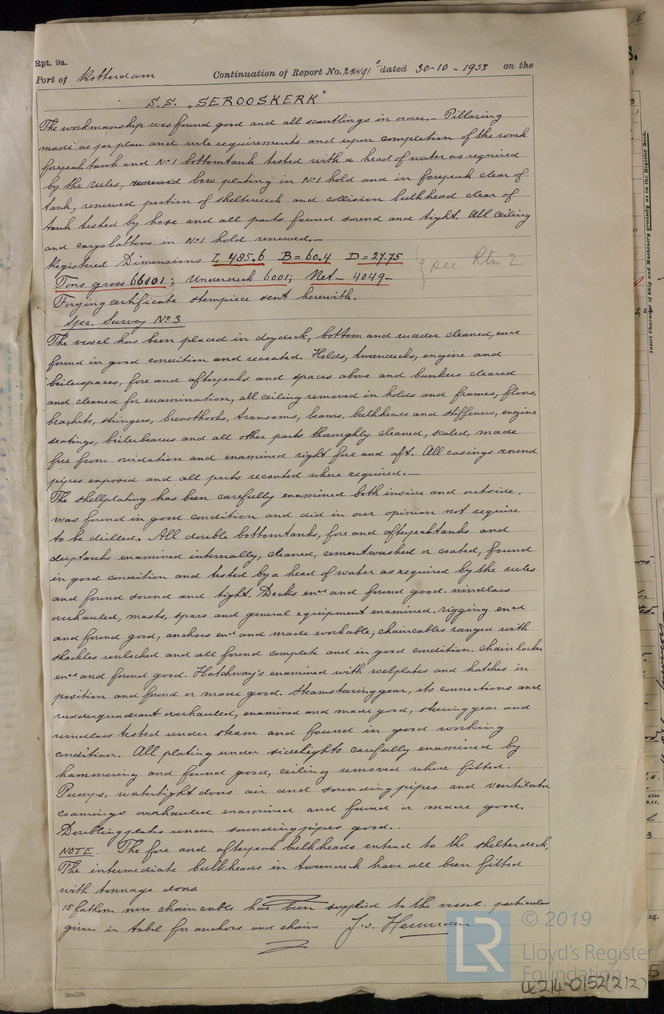 Rpt. 9a.
Port of Rotterdam Continuation of Report No. dated 30-10-1933 on the
S.S. „SEROOSKERK"
The workmanship was found good and all scantlings in order.— Pillaring
made as per plan and rule requirements and upon completion of the work
forepeak tank and No 1 bottomtank tested with a head of water as required
by the rules, renewed bow plating in No 1 hold and in forepeak clear of
tank, renewed portion of shelterdeck and collision bulkhead clear of
tank tested by hose and all parts found sound and tight. All ceiling
and cargobattens in No 1 hold renewed.—
Registered Dimensions L 485.6 B=60.4 D=27.75 see Rtn 2
Tons gross ; Underdeck 6001; Net— 4049—
Forging certificate stempiece sent herewith.
Spec. Survey No 3
The vessel has been placed in drydock, bottom and rudder cleaned, and
found in good condition and recoated. Holds, tweendecks, engine and
boilerspaces, fore and afterpeaks and spaces above and bunkers cleared
and cleaned for examination, all ceiling removed in holds and frames, floors,
brackets, stringers, breasthooks, transoms, beams, bulkheads and stiffeners, engine
seatings, boilerbearers and all other parts thoroughly cleaned, scaled, made
free from oxidation and examined right fore and aft. All casings round
pipes exposed and all parts recoated where required.—
The shellplating has been carefully examined both inside and outside,
was found in good condition and did in our opinion not require
to be drilled. All double bottomtanks, fore and afterpeaktanks and
deeptanks examined internally, cleaned, cementwashed or coated, found
in good condition and tested by a head of water as required by the rules
and found sound and tight. Decks exd and found good. windlass
overhauled, masts, spars and general equipment examined. rigging exd
and found good, anchors exd and made workable, chaincables ranged with
shackles unlocked and all found complete and in good condition. chain locker
exd and found good. Hatchway's examined with webplates and hatches in
position and found or made good. Steamsteeringgear, its connections and
rudderquadrant overhauled, examined and made good, steering gear and
windlass tested under steam and found in good working
condition. All plating under sidelights carefully examined by
hammering and found good, ceiling removed where fitted.
Pumps, watertight doors air and sounding pipes and ventilator
coamings overhauled examined and found or made good.
Doublingplates under soundingpipes good.
NOTE. The fore and afterpeak bulkheads extend to the shelterdeck,
The intermediate bulkheads in tweendeck have all been fitted
with tonnage doors
15 fathom new chain cable has been supplied to the vessel. particulars
given in tabel for anchors and chains J. v.
LR © 2019
Lloyd's Register
Foundation
W214-0152(2/2)